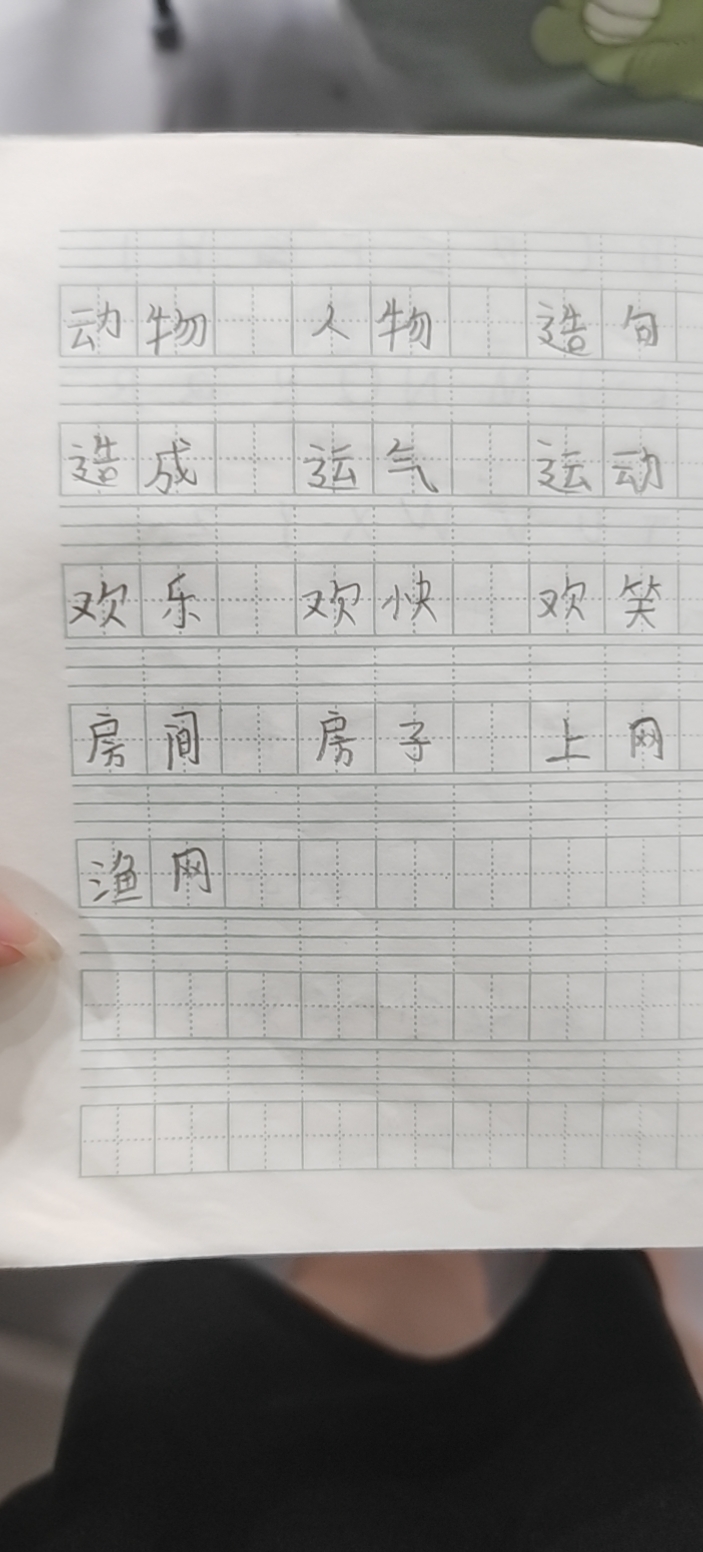 动物 人物 造句
造成 运气 运动
欢乐 欢快 欢笑
房间 房子 上网
渔网